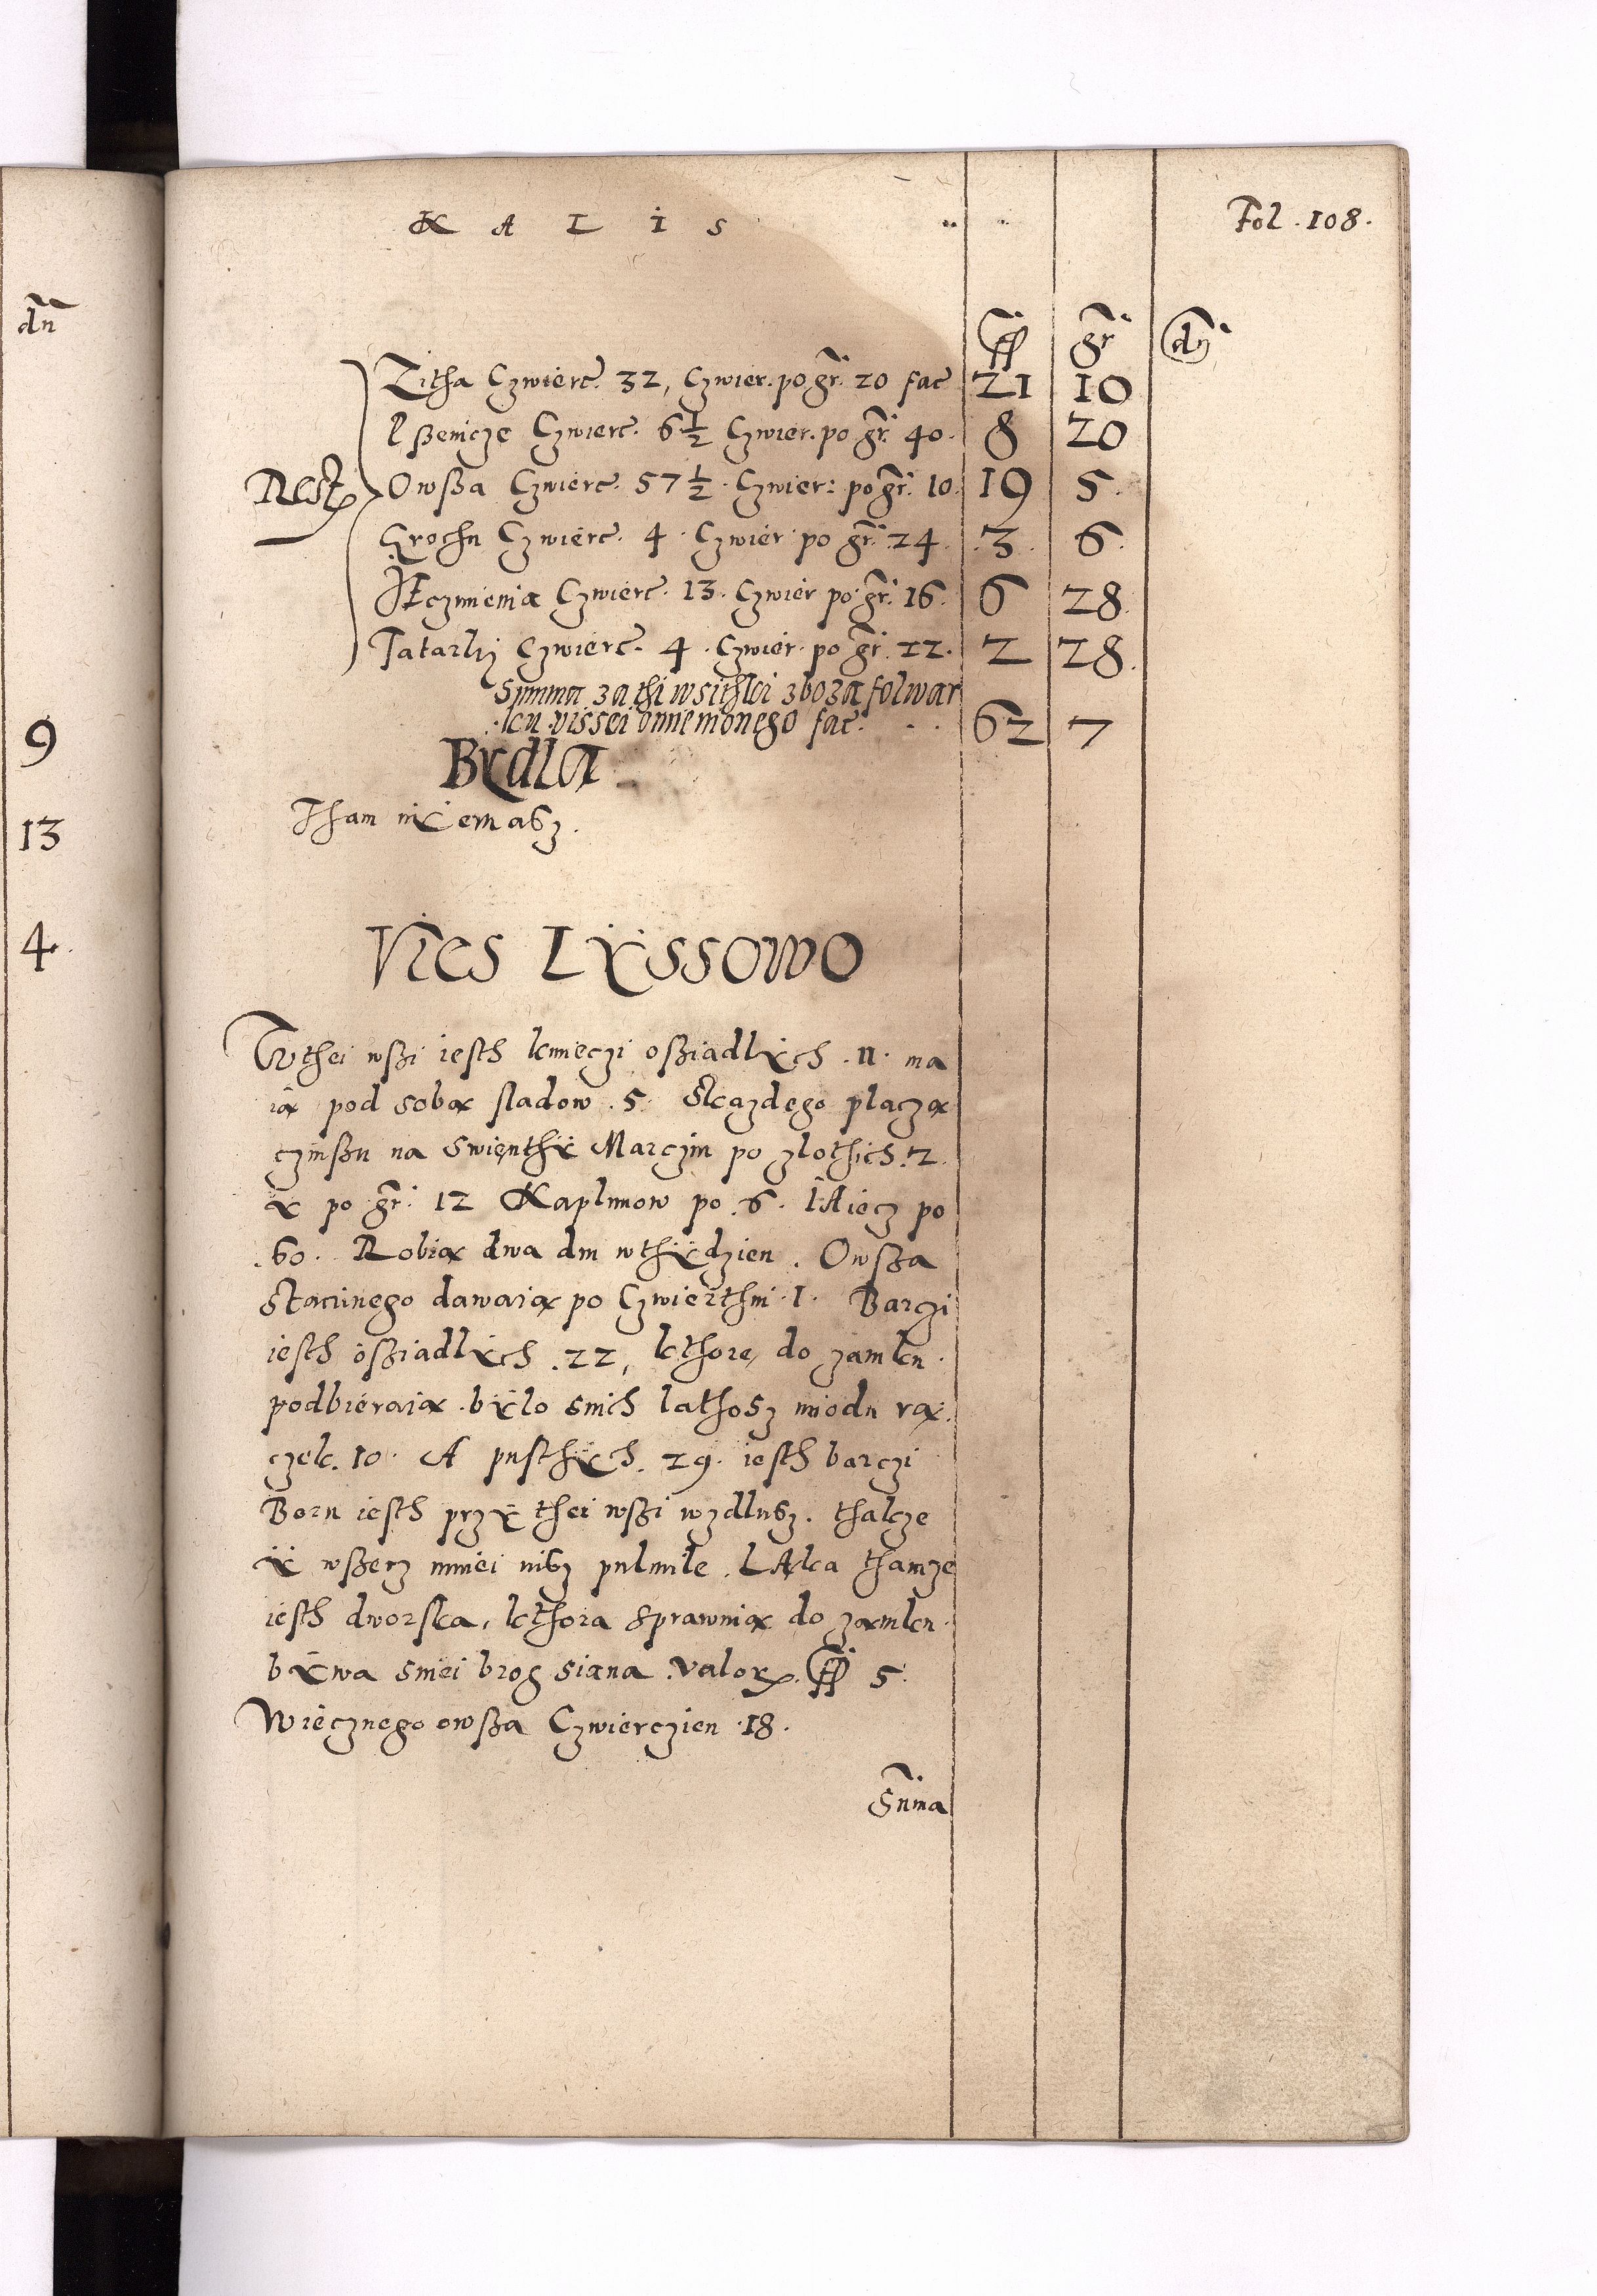 KALIS
Fol. 108.
ff gr dn
Zitha Czwierc. 32, Czwier. po gr. 20 fac 21 10
Pßenicze Czwierc. 6 1/2 Czwier. po gr. 40. 8 20
Rest Owßa Czwierc. 57 1/2. Czwier: po gr. 10. 19 5.
Grochu Czwierc. 4. Czwier po gr. 24. 3. 6.
Jęczmienia Czwierc. 13. Czwier po gr. 16. 6 28.
Tatarki Czwierc. 4. Czwier. po gr. 22. 2 28.
Summa za thi wsithki zboza folwar
ku vissei omiemonego fac. 62 7
Bydla
Tham niẏemasz.
Vies Lẏssowo
W thei wßi iesth kmieczi oßiadlẏch .11. ma
ią pod sobą sladow .5. Skazdego placzą
czinßu na Swienthẏ Marczin po zlothich .2.
ẏ po gr. 12 Kaplunow po .6. IAiecz po
.60. Robią dwa dni wthẏdzien. Owßa
Stacinego dawaią po Czwierthni .1. Barczi
iesth oßiadlẏch .22, kthore do zamku.
podbieraią. bẏlo snich lathosz miodu rą.
czek. 10. A pusthẏch. 29. iesth barczi
Boru iesth przẏ thei wßi wzdlusz. thakze
ẏ wßerz mniei nisz pulmile. LAka thamze
iesth dworska, kthora sprawuią do zamku.
bẏwa snei brog siana. valor. ff 5.
Wiecznego owßa Czwierczien .18.
Suma
dn
9
13
4.